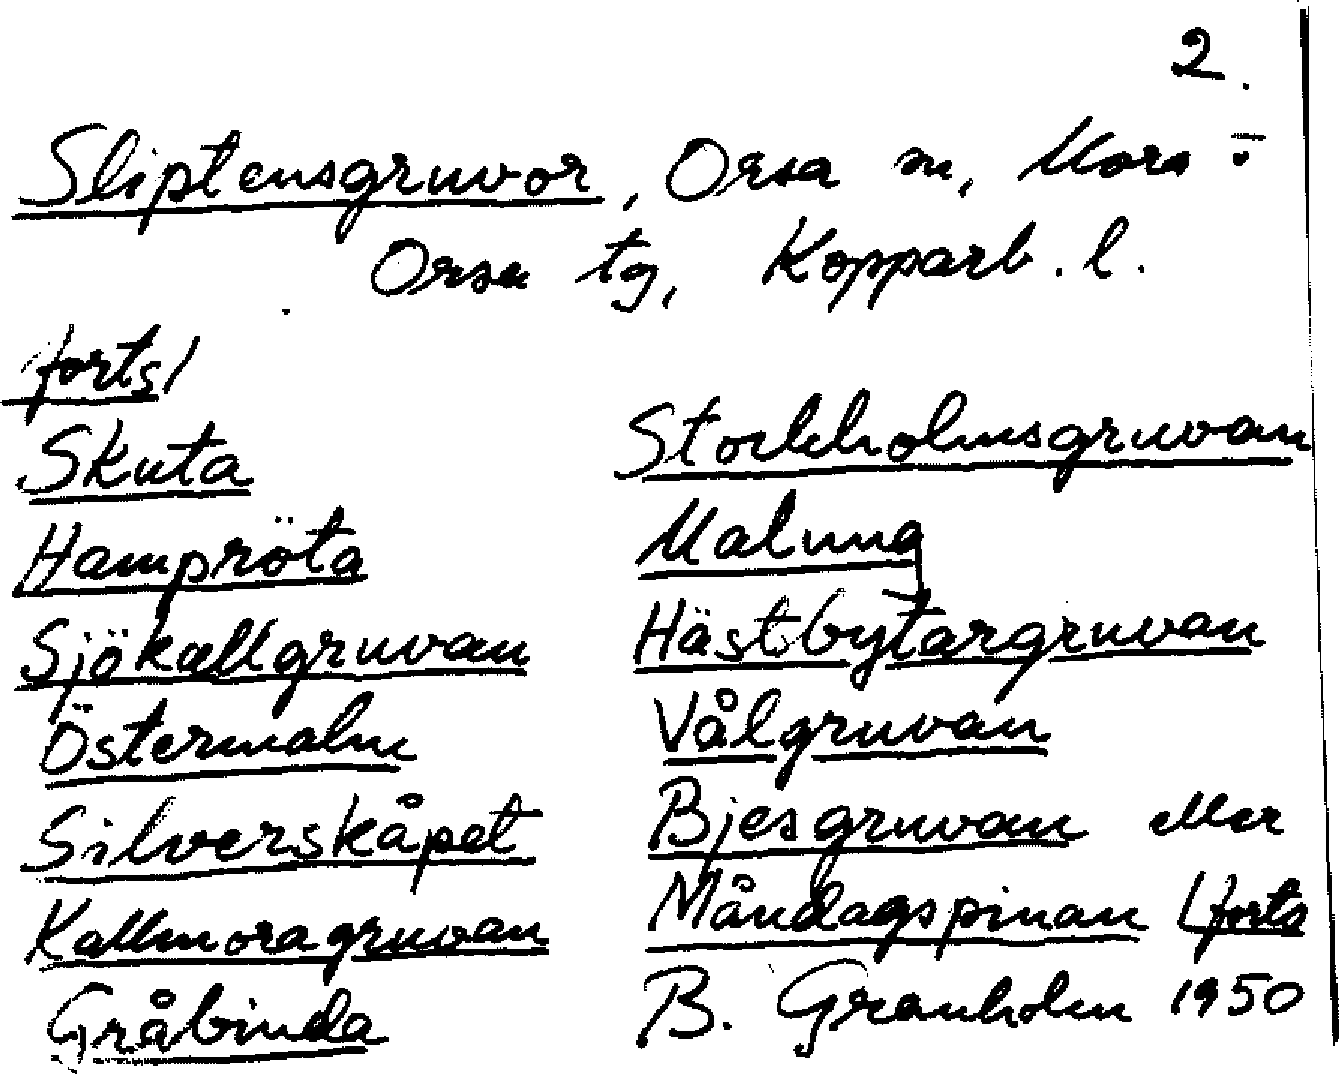 2.
Sliptensgruvor, Orsa sn, Mora
Orsa tg, Kopparb. l.
forts/
Skuta
Hampröta
Sjökallgruvan
Östermalm
Silverskåpet
Kallmoragruvan
Gråbinda
Stockholmsgruvan
Malung
Hästbytargruvan
Vålgruvan
Bjesgruvan eller
Måndagspinan (forts
B. Granholm 1950